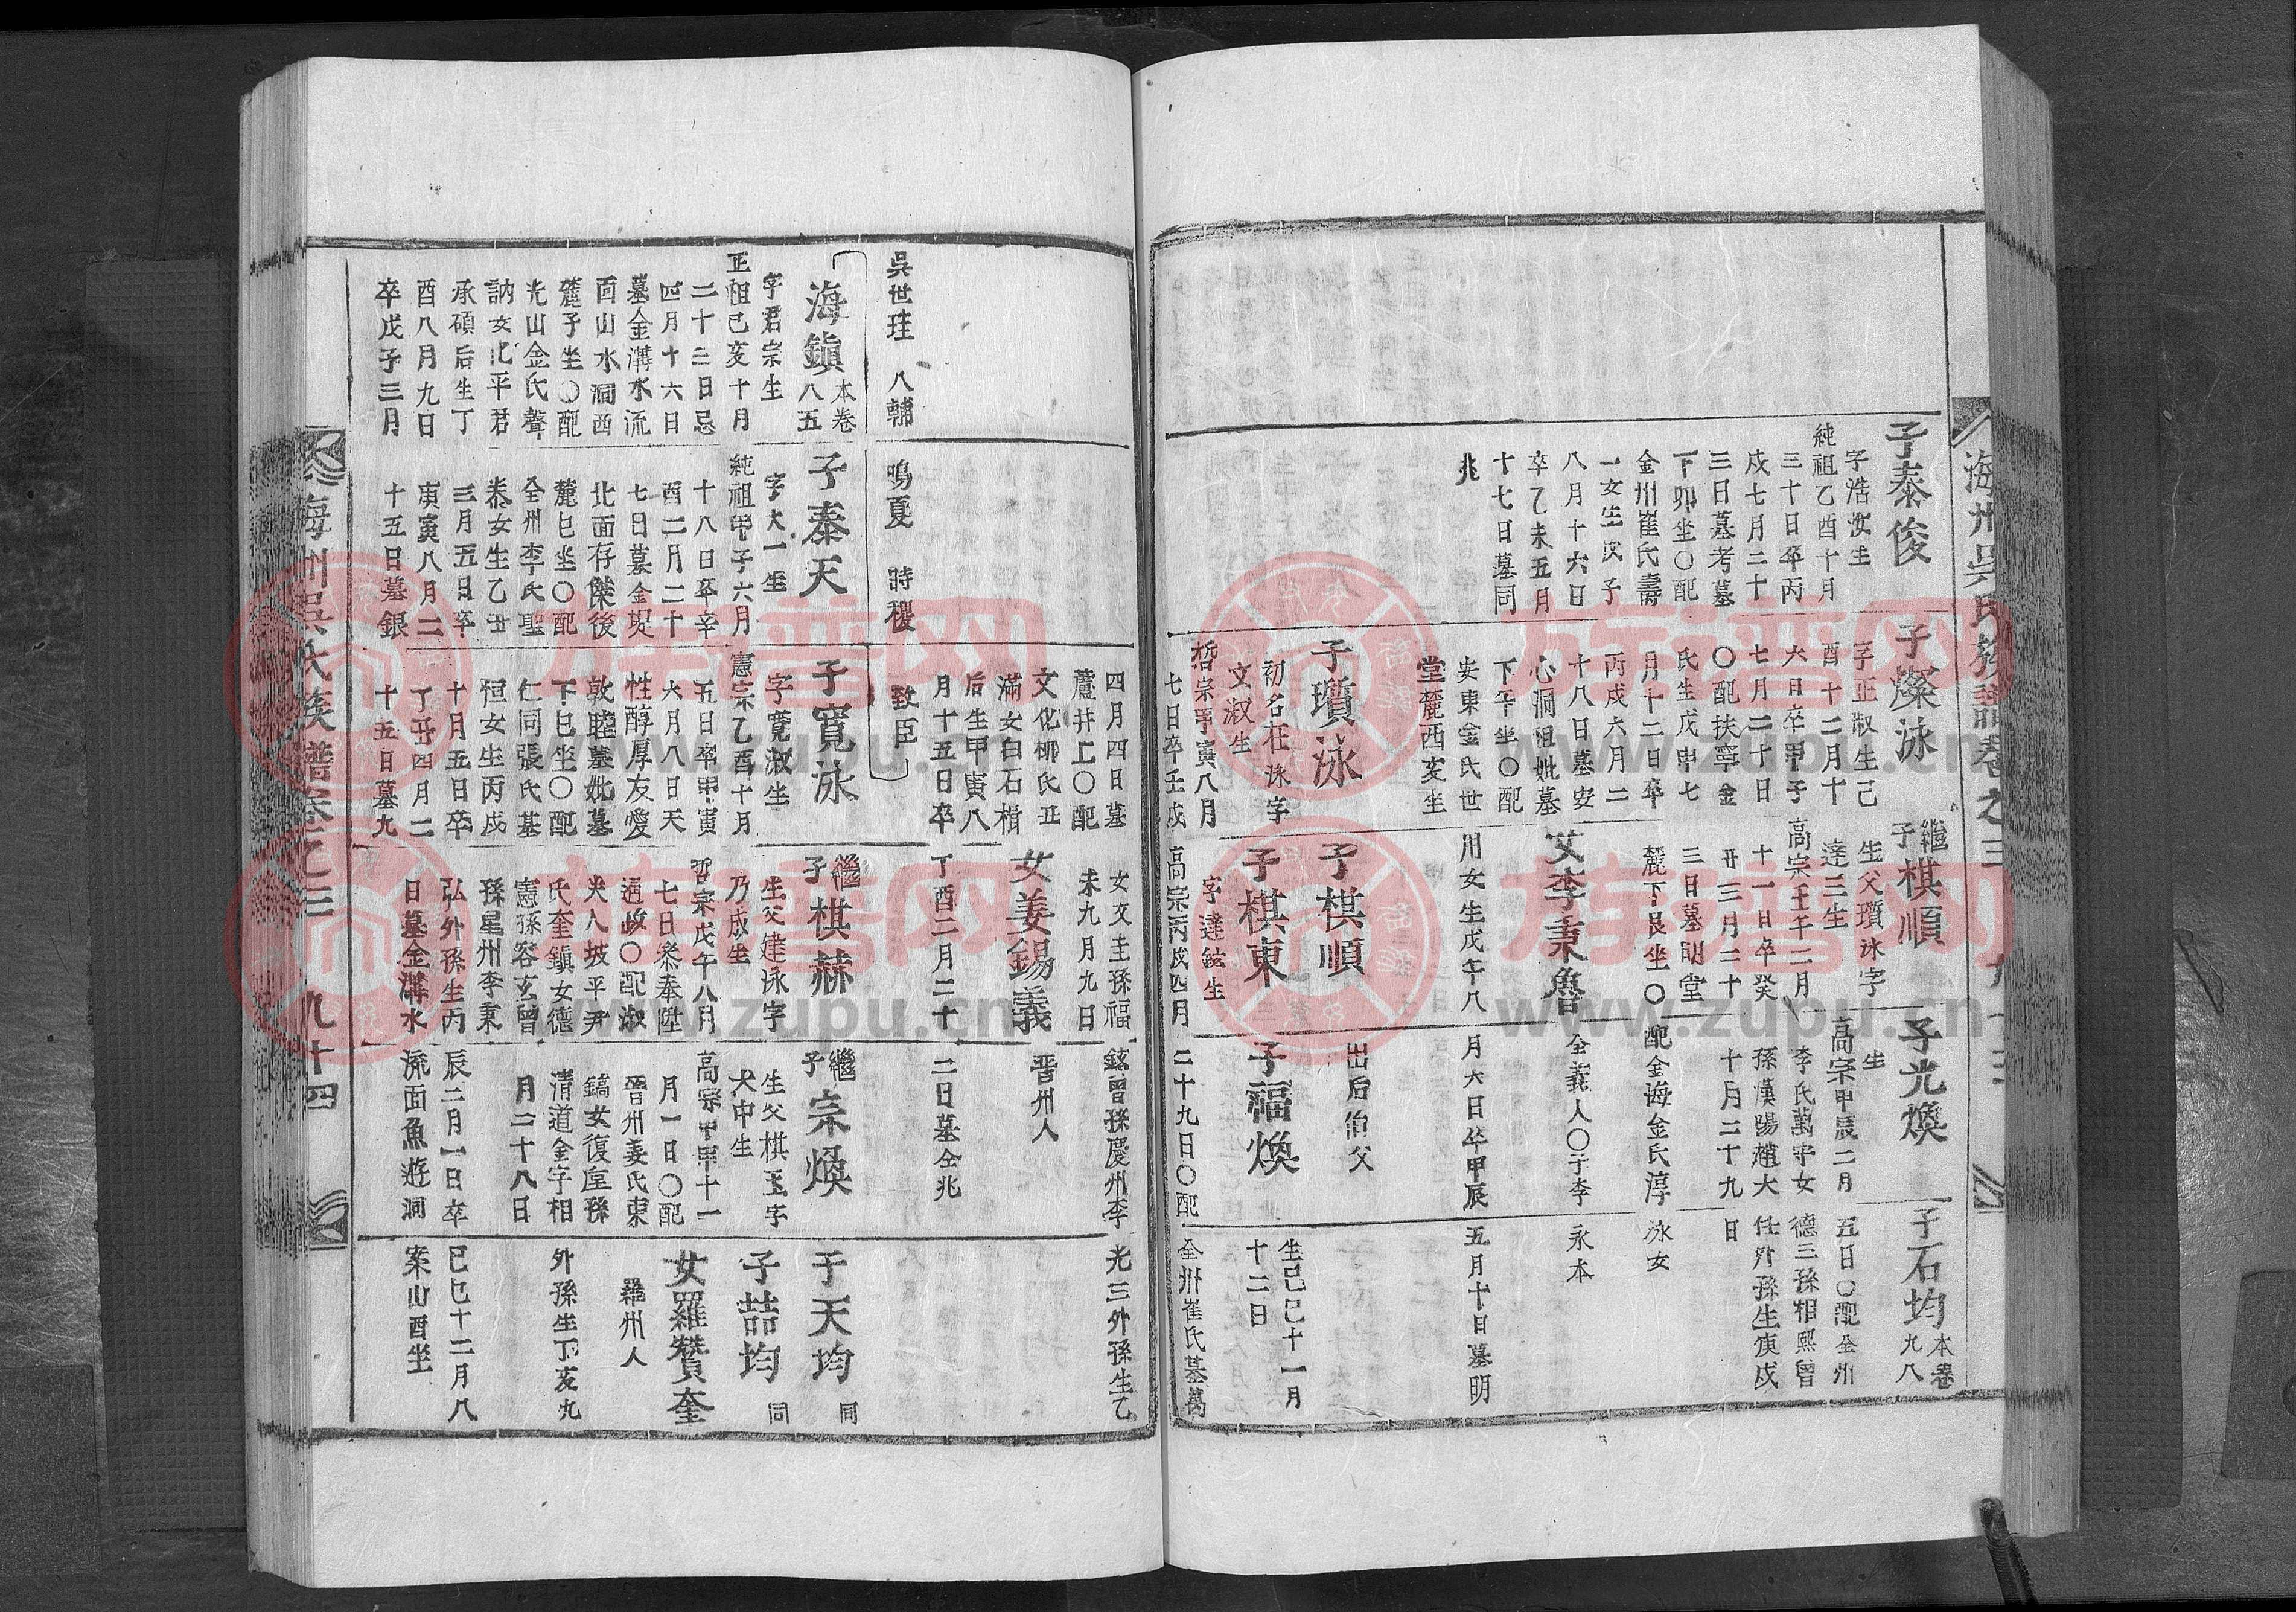 海州吳氏族譜卷之三
九十三
子泰俊
字浩汝生
純祖乙酉十月
三十日卒丙
戌七月二十
三日墓考墓
下卯坐〇配
金州崔氏壽
一女生戊子
八月十六日
卒乙未五月
十七日墓同
兆
子燦泳
字正淑生己
酉十二月十
六日卒甲子
七月二十日
〇配扶寧金
氏生戊申七
月十二日卒
丙戌六月二
十八日墓安
心洞祖妣墓
下午坐〇配
安東金氏世
堂麓西亥坐
子瓚泳
初名在泳字
文淑生
哲宗甲寅八月
七日卒壬戌
繼子棋順
生父瓚泳字
達三生
高宗壬午二月
十一日卒癸
丑三月二十
三日墓明堂
麓下艮坐〇
女李秉魯
用女生戊午八
子棋順
子棋東
字達鉉生
高宗丙戌四月
子光煥
生
高宗甲辰二月
李氏萬宇女
孫漢陽趙大
十月二十九
配金海金氏淳
全義人〇子李
月六日卒甲辰
出后伯父
子福煥
二十九日〇配
子石均 本卷九八
五日〇配全州
德三孫相熙曾
任外孫生庚戌
日
泳女
永本
五月十日墓明
生己巳十一月
十二日
全州崔氏基萬
四月四日墓
麓井上〇配
文化柳氏丑
滿女白石楷
后生甲寅八
月十五日卒
女文圭孫福
未九月九日
女姜錫義
丁酉二月二十
鉉曾孫慶州李
晋州人
二日墓仝兆
光三外孫生乙
吳世珪 八輔
鳴夏 時稷
致臣
海鎭 本卷八五
字君宗生
正祖己亥十月
二十三日忌
四月十六日
墓金溝水流
面山水洞酉
麓子坐〇配
光山金氏聲
訥女北平君
承碩后生丁
酉八月九日
卒戊子三月
子泰天
字大一生
純祖甲子六月
十八日卒辛
酉二月二十
七日墓金堤
北面存傑後
麓巳坐〇配
全州李氏聖
泰女生乙丑
三月五日卒
庚寅八月二
十五日墓銀
子寬泳
字寬淑生
憲宗乙酉十月
五日卒甲寅
六月八日天
性醇厚友愛
敦睦墓妣墓
下巳坐〇配
仁同張氏基
恒女生丙戌
十月五日卒
丁丑四月二
十五日墓九
繼子棋赫
生父建泳字
乃成生
哲宗戊午八月
七日叅奉陞
通政〇配淑
夫人坡平尹
氏奎鎭女德
憲孫容玄曾
孫星州李秉
弘外孫生丙
日墓金溝水
繼子宗煥
生父棋玉字
大中生
高宗甲申十一
月一日〇配
晉州姜氏東
鎬女復垕孫
清道金字相
月二十八日
辰二月一日卒
流面魚遊洞
子天均 同
子喆均 同
女羅贊奎
羅州人
外孫生丁亥九
己巳十二月八
案山酉坐
海州吳氏族譜卷之三
九十四
族谱网
www.zupu.cn
族谱网
www.zupu.cn
族谱网
www.zupu.cn
族谱网
www.zupu.cn